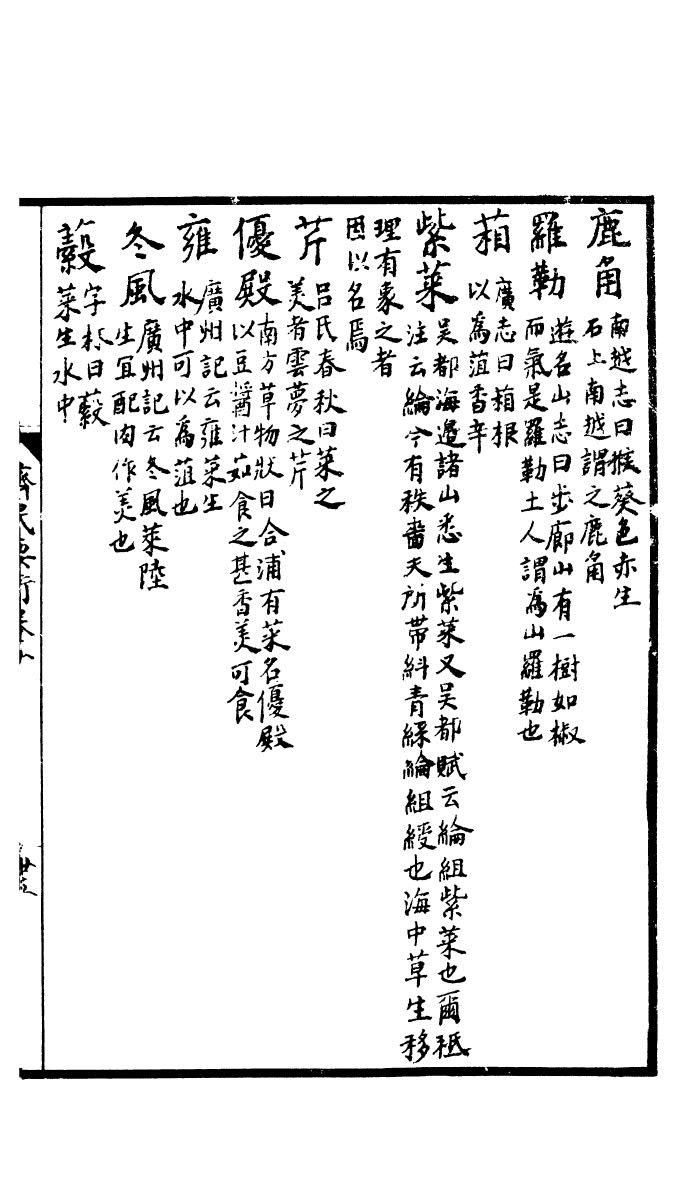 鹿角南越志曰猴葵色赤生
石上南越謂之鹿角
羅勒遊名山志曰步廊山有一樹如椒
而氣是羅勒土人謂爲山羅勒也
葙廣志曰葙根
以爲菹香辛
紫菜吳都海邉諸山悉生紫菜又吳都賦云綸組紫菜也爾秪
注云綸今有秩嗇夫所帶糾青綵綸組綬也海中草生移
理有象之者
因以名焉
芹吕氏春秋曰菜之
美者雲夢之芹
優殿南方草物狀曰合浦有菜名優殿
以豆醬汁茹食之甚香美可食
雍廣州記云雍菜生
水中可以爲菹也
冬風廣州記云冬風菜陸
生宜配肉作羮也
字林曰
菜生水中
齊民要術卷十